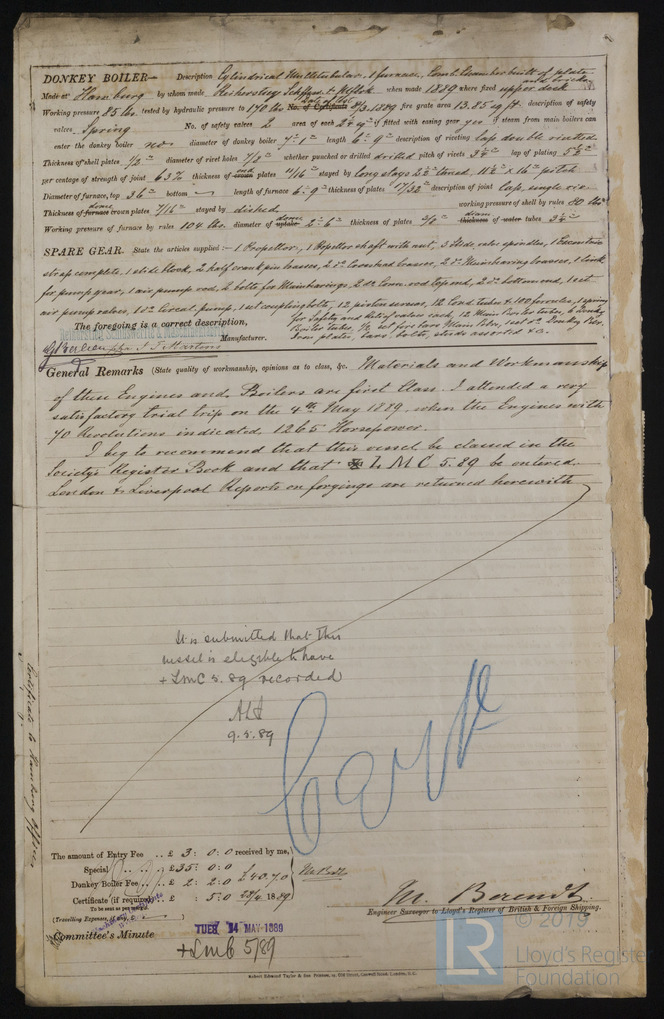 DONKEY BOILER— Description Cylindrical Multitubular, 1 furnace, Comb. Chamber built of plate and bricks
Made at Hamburg by whom made Reiherstieg Schiffswft & Mfbk when made 1889 where fixed upper deck
Working pressure 85 lbs. tested by hydraulic pressure to 170 lbs No. of Certificate Date of Test 4/3.1889 fire grate area 13.25 sq ft. description of safety
valves Spring No. of safety valves 2 area of each if fitted with easing gear yes if steam from main boilers can
enter the donkey boiler no. diameter of donkey boiler 7'-1" length 6'-9" description of riveting lap double riveted
Thickness of shell plates 1/2" diameter of rivet holes 7/8" whether punched or drilled drilled pitch of rivets lap of plating
per centage of strength of joint 63% thickness of crown end plates 11/16" stayed by long stays
Diameter of furnace, top 36" bottom length of furnace 6'-9" thickness of plates 17/32" description of joint lap, single riv
Thickness of furnace dome crown plates 7/16" stayed by dished working pressure of shell by rules 80 lbs
Working pressure of furnace by rules 104 lbs. diameter of uptake dome 2'-6" thickness of plates 3/8" thickness of water diam tubes
SPARE GEAR. State the articles supplied:— 1 Propellor, 1 Propellor shaft with nut, 3 Slide valve spindles, 1 Excentric
strap complete, 1 slide block, 2 half crank pin brasses, 2 do Crosshead brasses, 2 do Main bearing brasses, 1 link
for pump gear, 1 air pump rod, 2 bolts for Main bearings, 2 do Conn. rod top end, 2 do bottom end, 1 set
air pump valves, 1 do Circul. pump, 1 set coupling bolts, 12 piston screws, 12 Cond. tubes & 100 ferrules, 1 spring
for Safety and Set of valves each, 12 Main Boiler tubes, 6 Donkey
Boiler tubes, 1/2 set fire bars Main Boiler, 1 set do Donkey Boiler
Iron plates, bars, bolts, studs assorted &c.
The foregoing is a correct description,
Manufacturer.
General Remarks (State quality of workmanship, opinions as to class, &c. Materials and Workmanship
of these Engines and Boilers are first Class. I attended a very
satisfactory trial trip on the 4th May 1889, when the Engines with
70 Revolutions indicated 1265 Horsepower.
I beg to recommend that this vessel be classed in the
Society's Register Book and that L M C 5.89 be entered.
London & Liverpool Reports on forgings are returned herewith
It is submitted that this
vessel is eligible to have
+ LMC 5.89 recorded
9.5.89
Certificate to Hamburg Office
The amount of Entry Fee .. £ 3 : 0 : 0 received by me,
Special .. £35 : 0 : 0
Donkey Boiler Fee .. .. £ 2 : 2 : 0 £40.7.0
Certificate (if required) .. £ : 5 : 0 1889
To be sent as per margin.
(Travelling Expenses,
M. Berendt
Engineer Surveyor to Lloyd's Register of British & Foreign Shipping.
Committee's Minute
TUES 14 MAY 1889
+ LMC 5/89
Robert Edmund Taylor & Son Printers, 19, Old Street, Goswell Road, London, E.C.
© 2019
LR
Lloyd's Register
Foundation